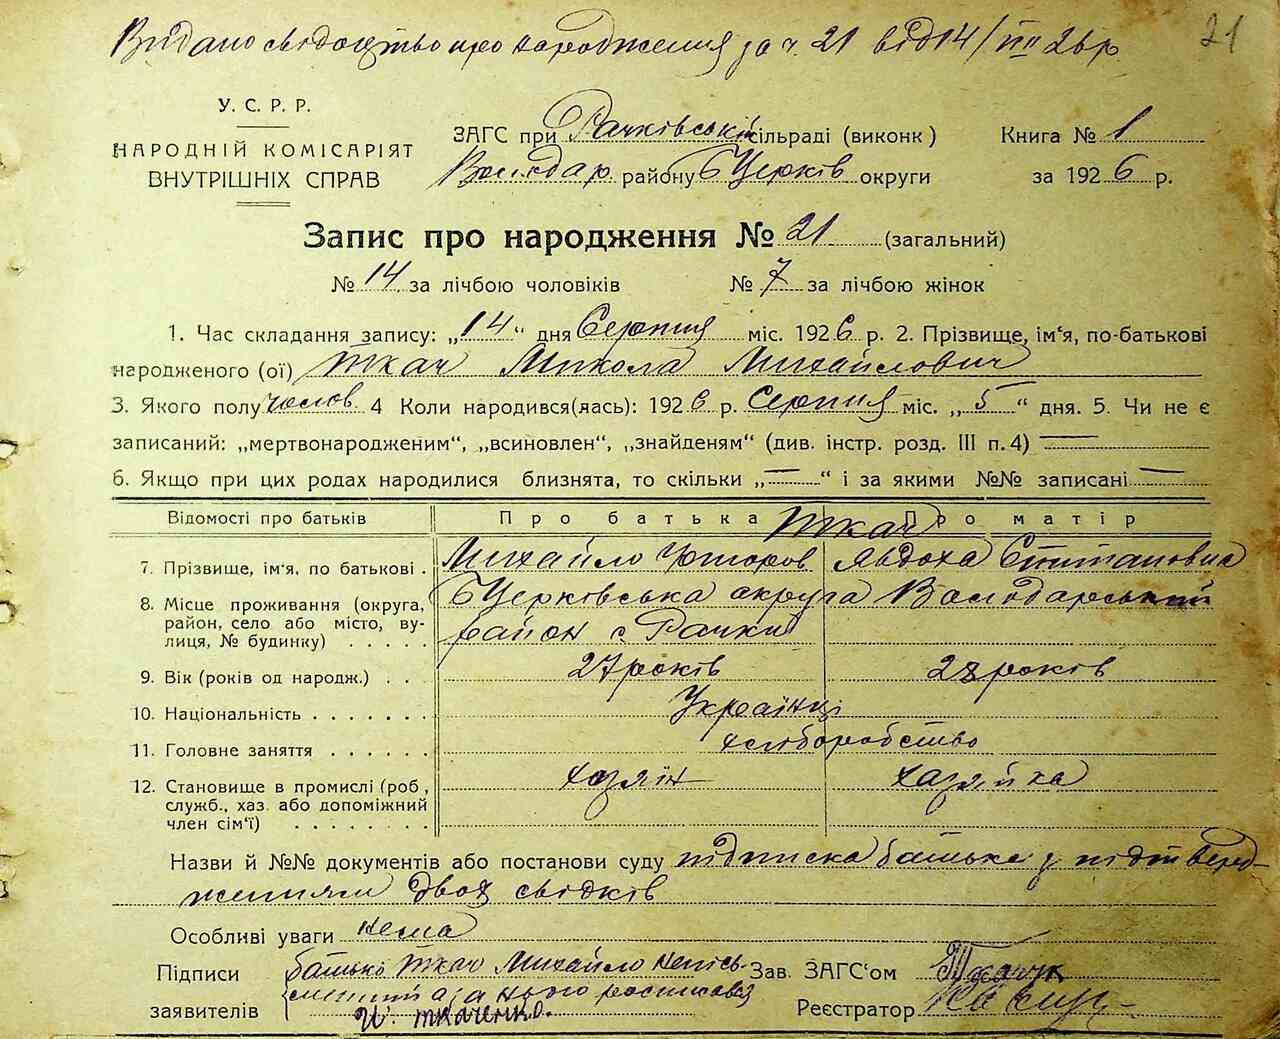 Видано свідоцтво про народження за ч. 21 від 14/VIII 26 р.
21
У. С. Р. Р.
НАРОДНІЙ КОМІСАРІЯТ
ВНУТРІШНІХ СПРАВ
ЗАГС при Рачківській сільраді (виконк)
Володар. району Б Церків округи
Книга № 1
за 1926 р.
Запис про народження № 21 (загальний)
№ 14 за лічбою чоловіків № 7 за лічбою жінок
1. Час складання запису: „14“ дня Серпня міс. 1926 р. 2. Прізвище, ім‘я, по-батькові
народженого (ої) Ткач Микола Михайлович
3. Якого полу чолов. 4 Коли народився(лась): 1926 р. Серпня міс. „5“ дня. 5. Чи не є
записаний: „мертвонародженим“, „всиновлен“, „знайденям“ (див. інстр. розд. III п. 4) —
6. Якщо при цих родах народилися близнята, то скільки „—“ і за якими №№ записані —
Відомості про батьків Про батька Ткач Про матір
7. Прізвище, ім‘я, по батькові . Михайло Явдоха Степановна
8. Місце проживання (округа, Б Церківська округа Володарський
район, село або місто, ву- район с. Рачки
лиця, № будинку) . . . . .
9. Вік (років од народж.) . . . 27 років 28 років
10. Національність . . . . . . . Українці
11. Головне заняття . . . . . . хліборобство
12. Становище в промислі (роб., хозяїн хазяйка
служб., хаз. або допоміжний
член сім‘ї) . . . . . . . .
Назви й №№ документів або постанови суду підписка батька з підтверд-
женням двох свідків
Особливі уваги нема
Підписи батько Ткач Михайло неписьм-
заявителів а за нього росписався
И. Ткаченко.
Зав. ЗАГС‘ом Ткачук
Реєстратор